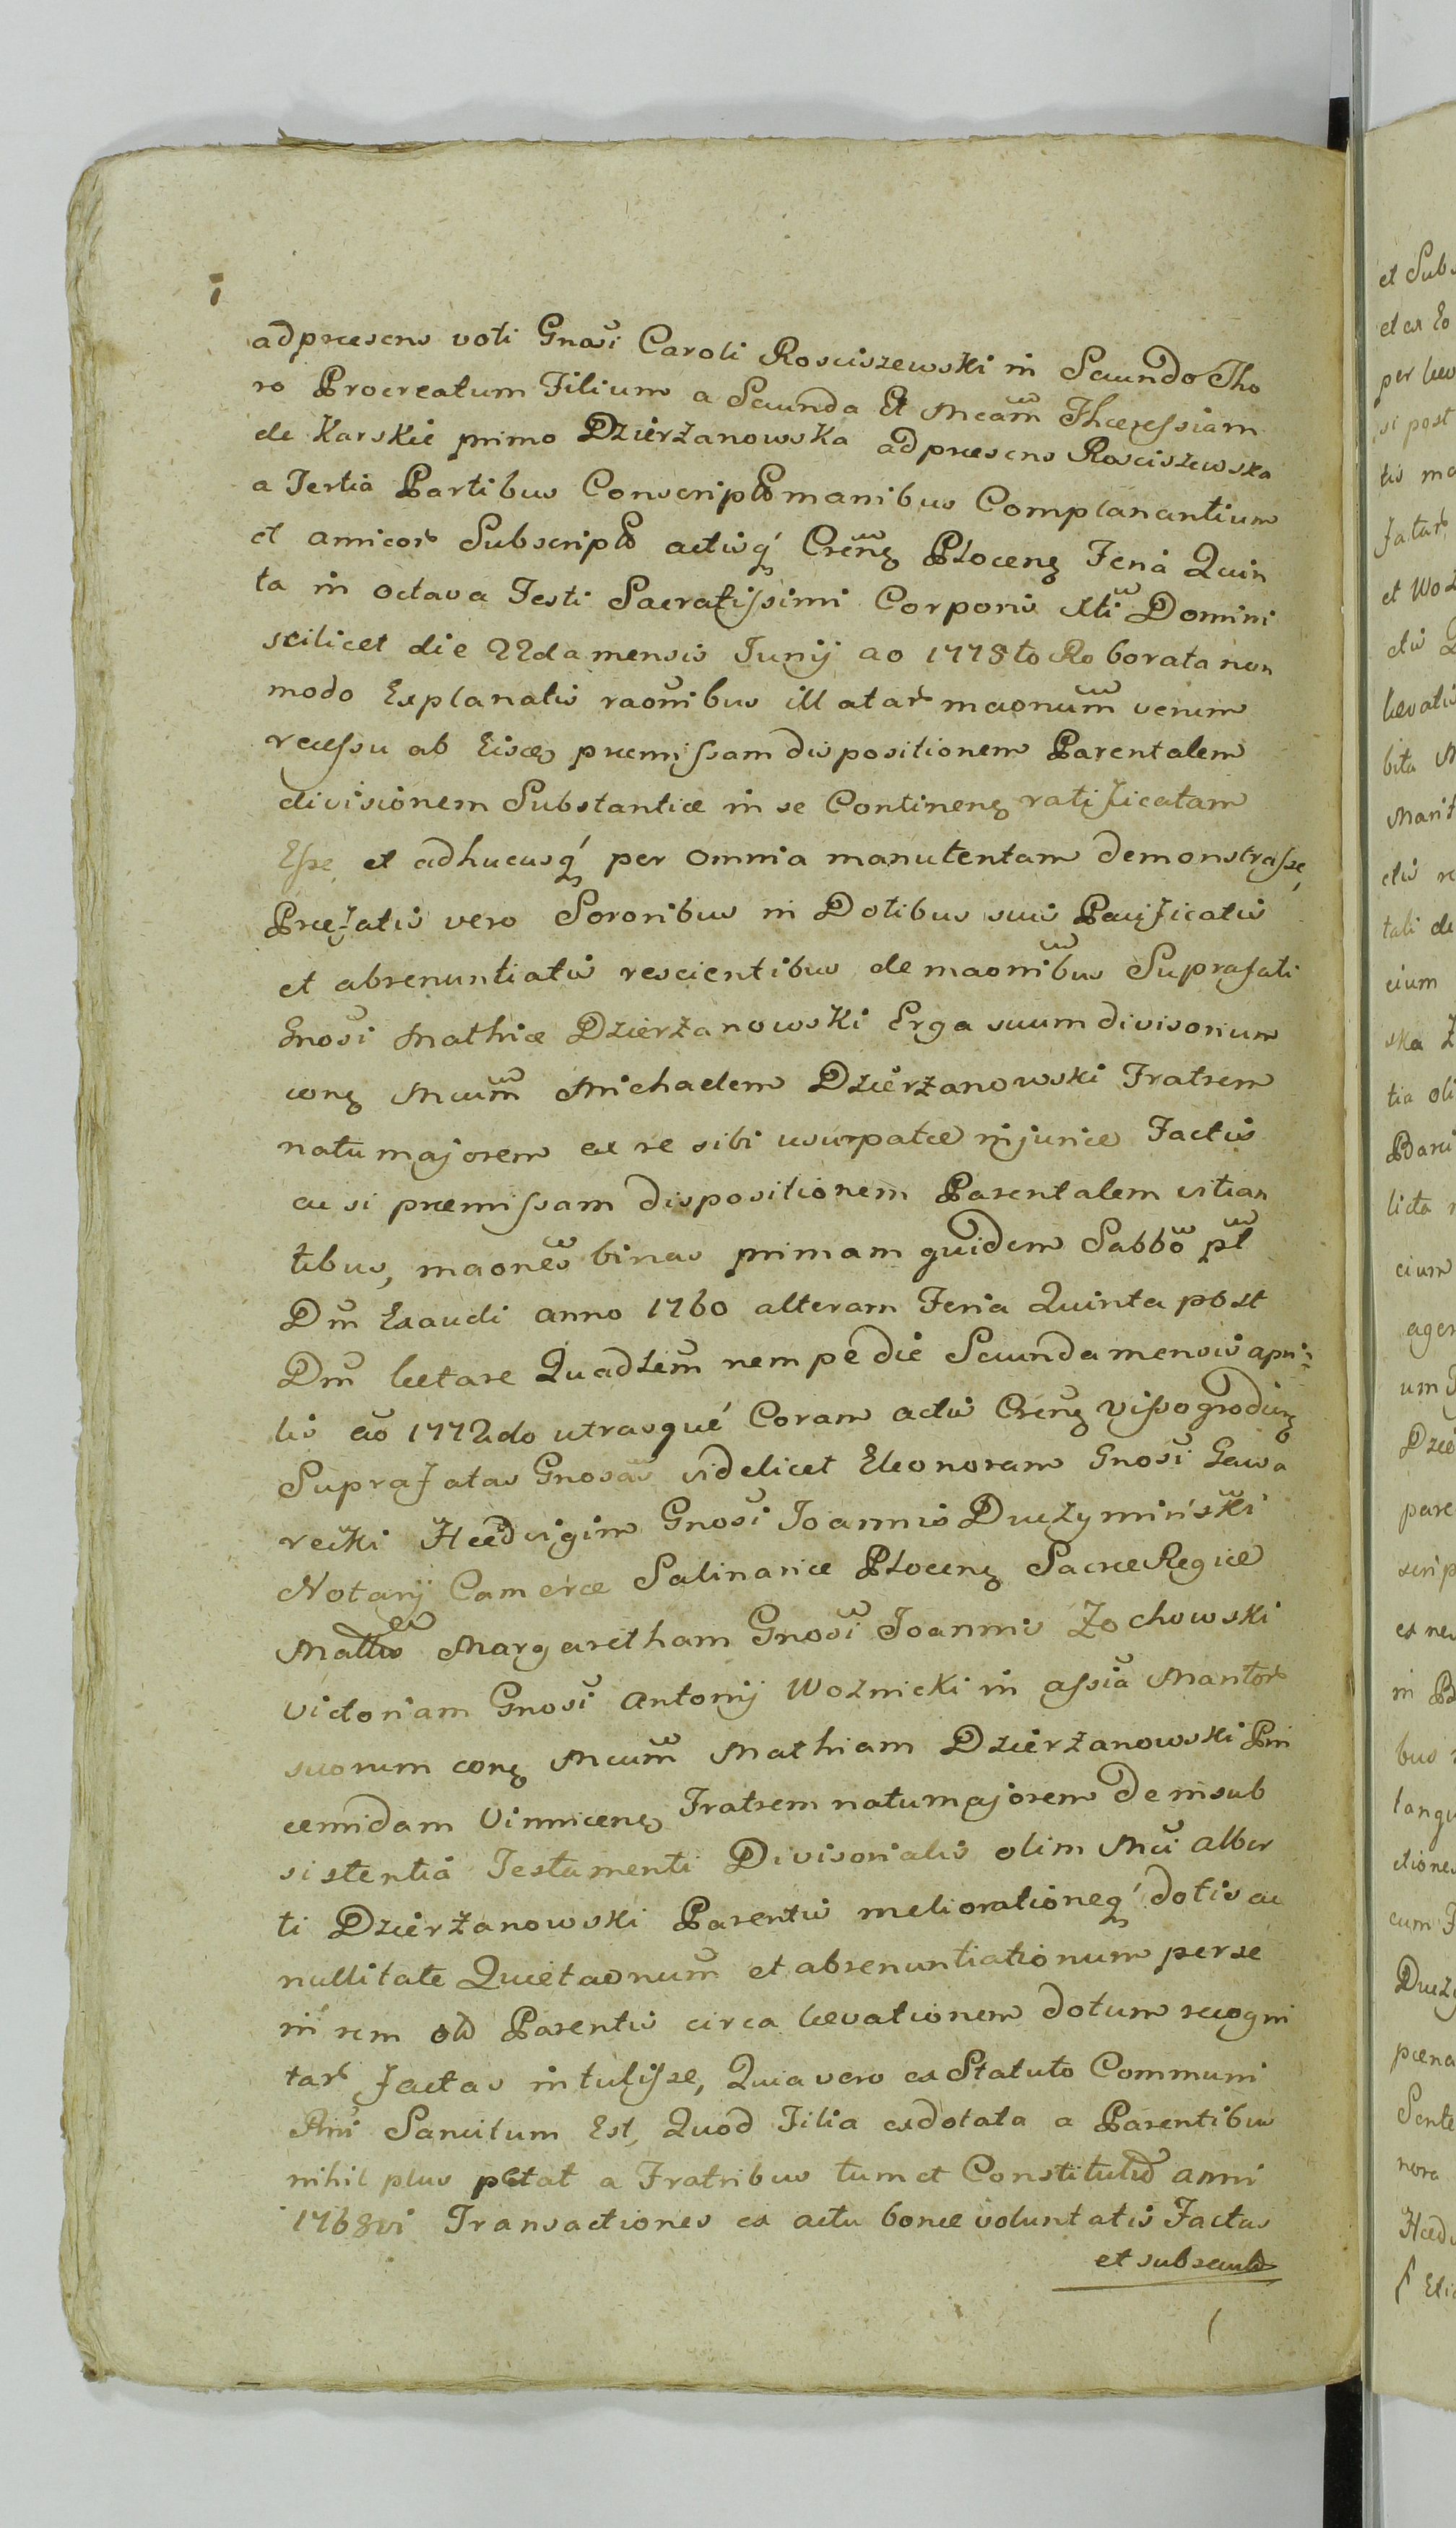 ad præsens voti Gnosi Caroli Rosciszewski in Secundo Tho
ro Procreatum Filium a Secunda Et Mcam Thæressiam
de Karskie primo Dzierżanowska ad præsens Rosciszewska
a Tertia Partibus Conscripto manibus Complanantium
et amicor Subscripto actisq́ Crēnẓ Plocenẓ Feria Quin
ta in octava Festi Sacratissimi Corporis Xti Domini
scilicet die 22da mensis Junij ao 1775to Roborata non
modo Explanatis raonibus illatar maonum verum
recessu ab Eisdẓ præmissam dispositionem Parentalem
divisionem Substantiæ in se Continenẓ ratificatam
Esse et adhucusq́ per omnia manutentam demonstrasse,
Præfatis vero Sororibus in Dotibus suis Pacificatis
et abrenuntiatis rescientibus de maonibus Suprafati
Gnosi Mathiæ Dzierżanowski Erga suum divisorium
conẓ Mcum Michaelem Dzierżanowski Fratrem
natu majorem ex re sibi usurpatæ injuriæ Factis
ac si præmissam dispositionem Parentalem vitian
tibus, maones binas primam quidem Sabbo pt
Dm Exaudi anno 1760 alteram Feria Quinta post
Dm lætare Quadlem nempe die Secunda mensis apri-
lis ao 1772do utrasque Coram actis Crenẓ Vissogrodienẓ
Suprafatas Gnosas videlicet Eleonoram Gnosi Gawa
recki Hædvigim Gnosi Joannis Duczymiński
Notarij Cameræ Salinariæ Plocenẓ Sacræ Regiæ
Mattis Margaretham Gnosi Joannis Zochowski
Victoriam Gnosi Antonij Woznicki in assia Maritor
suorum conẓ Mcum Mathiam Dzierżanowski Pin
cernidam Vinnicenẓ Fratrem natu majorem de insub
sistentia Testamenti Divisorialis olim Mci Alber
ti Dzierżanowski Parentis melioratione q́ dotis ac
nullitate Quietaonum et abrenuntiationum per se
in rem old Parentis circa levationem dotum recogni
tar factas intulisse, Quia vero ex Statuto Communi
Rni Sancitum Est, Quod Filia exdotata a Parentibus
nihil plus petat a Fratribus tum et Constitutio anni
1768vi Transactiones ex actu bonæ voluntatis Factas
et subsecuto